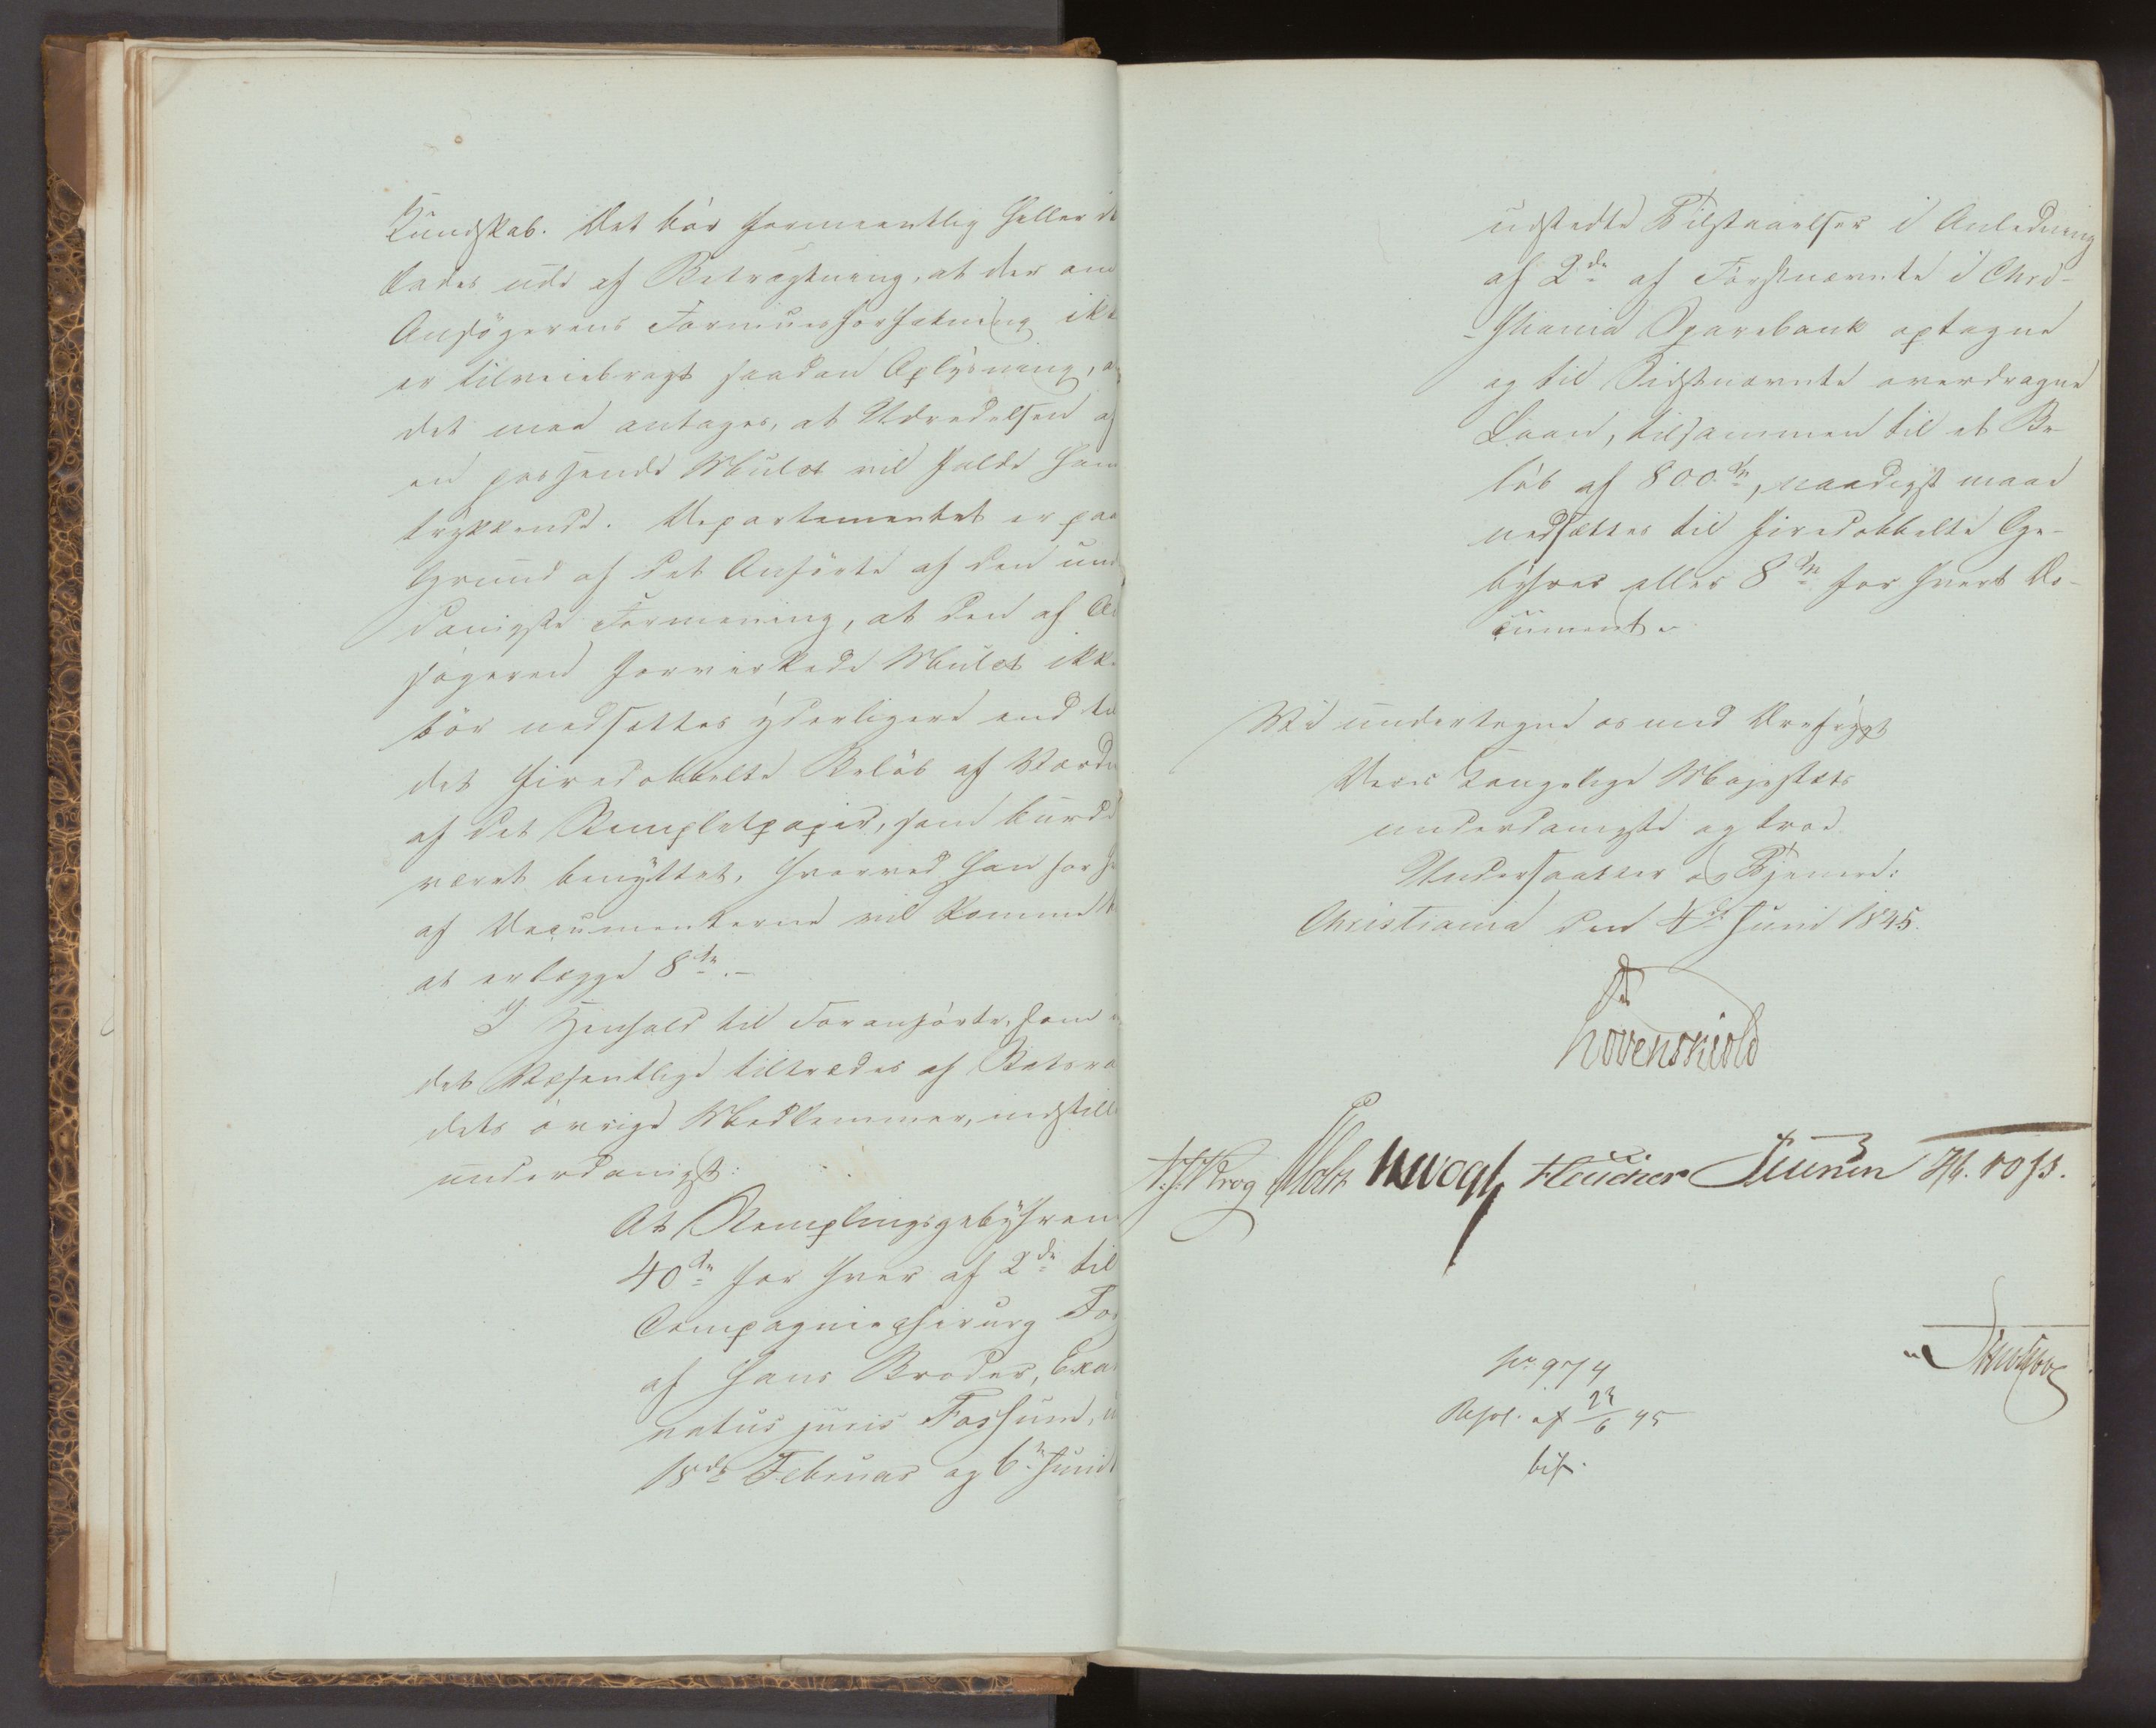 Kundskab. Det bør formeentlig heller ik
lades ude af Betragtning, at der om
Ansøgerens Formuesforfatning ikk
er tilveiebragt saadan Oplysning, a
det maa antages, at Udredelsen af
en passende Mulct vil falde ham
trykkende. Departementet er paa
Grund af det Anførte af den und
danigste Formening, at den af An
søgeren forvirkede Mulct ikke
bør nedsættes yderligere end til
det firedobbelte Beløb af Værdie
af det Stempletpapir, som burde
været benyttet, hvorved han for h
af Documenterne vil komme t
at erlægge 8 Sp.-
I Henhold til Foranførte, som i
det Væsentlige tiltrædes af Statsraa
dets øvrige Medlemmer, indstille
underdanigst:
At Stemplingsgebyhren
40 Sp for hver af 2de til
Compagniechirurg Fos
af hans Broder, Exa
natus juris Fossum, u
18de Februar og 6te Juni
udstedte Tilstaaelser i Anledning
af 2de af Førstnævnte i Chri-
-stiania Sparebank optagne
og til Sidstnævnte overdragne
Laan, tilsammen til et Be-
løb af 800 Sp, naadigst maae
nedsættes til firedobbelte Ge-
byhrer eller 8 Sp for hvert Do-
cument.
Vi undertegne os med Ærefrygt
Deres Kongelige Majestæts
underdanigste og troe
Undersaatter og Tjenere:
Christiania den 4de Juni 1845.
Løvenskiold
Krog Holst Vogt
No 974
Resol. af 23/6 45